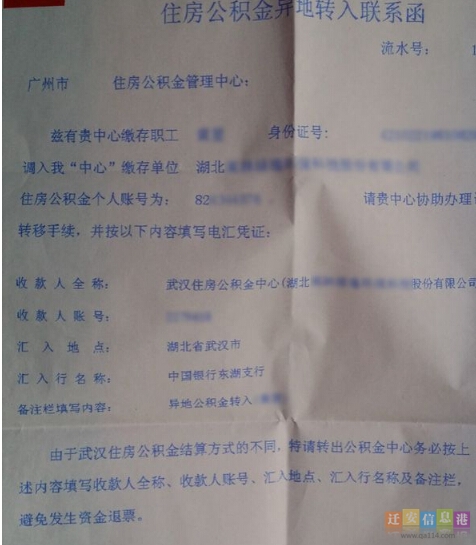 住房公积金异地转入联系函
流水号： 1
广州市 住房公积金管理中心：
兹有贵中心缴存职工 身份证号：
调入我“中心”缴存单位 湖北
住房公积金个人账号为： 82 请贵中心协助办理
转移手续，并按以下内容填写电汇凭证：
收款人全称： 武汉住房公积金中心(湖北 股份有限公司
收款人账号：
汇入地点： 湖北省武汉市
汇入行名称： 中国银行东湖支行
备注栏填写内容： 异地公积金转入
由于武汉住房公积金结算方式的不同，特请转出公积金中心务必按上
述内容填写收款人全称、收款人账号、汇入地点、汇入行名称及备注栏，
避免发生资金退票。
迁安信息港
www.qa114.com